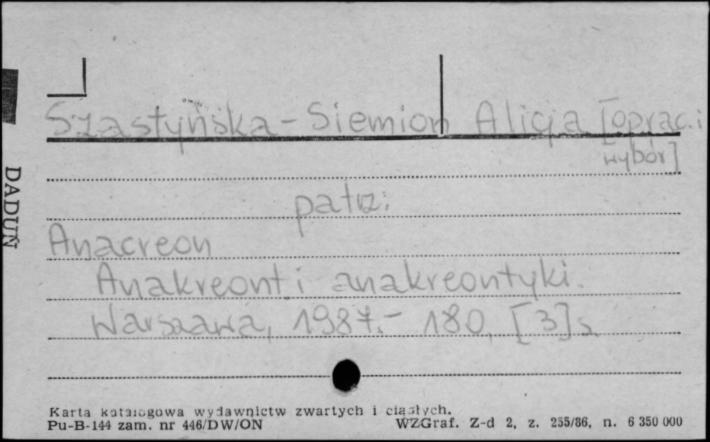 Szastyńska-Siemion Alicja [oprac. i
wybór]
patrz:
Anacreon
Anakreont i anakreontyki.
Warszawa, 1987.- 180, [3] s.
DADUŃ
Karta katalogowa wydawnictw zwartych i ciągłych.
Pu-B-144 zam. nr 446/DW/ON
WZGraf. Z-d 2, z. 255/86, n. 6 350 000